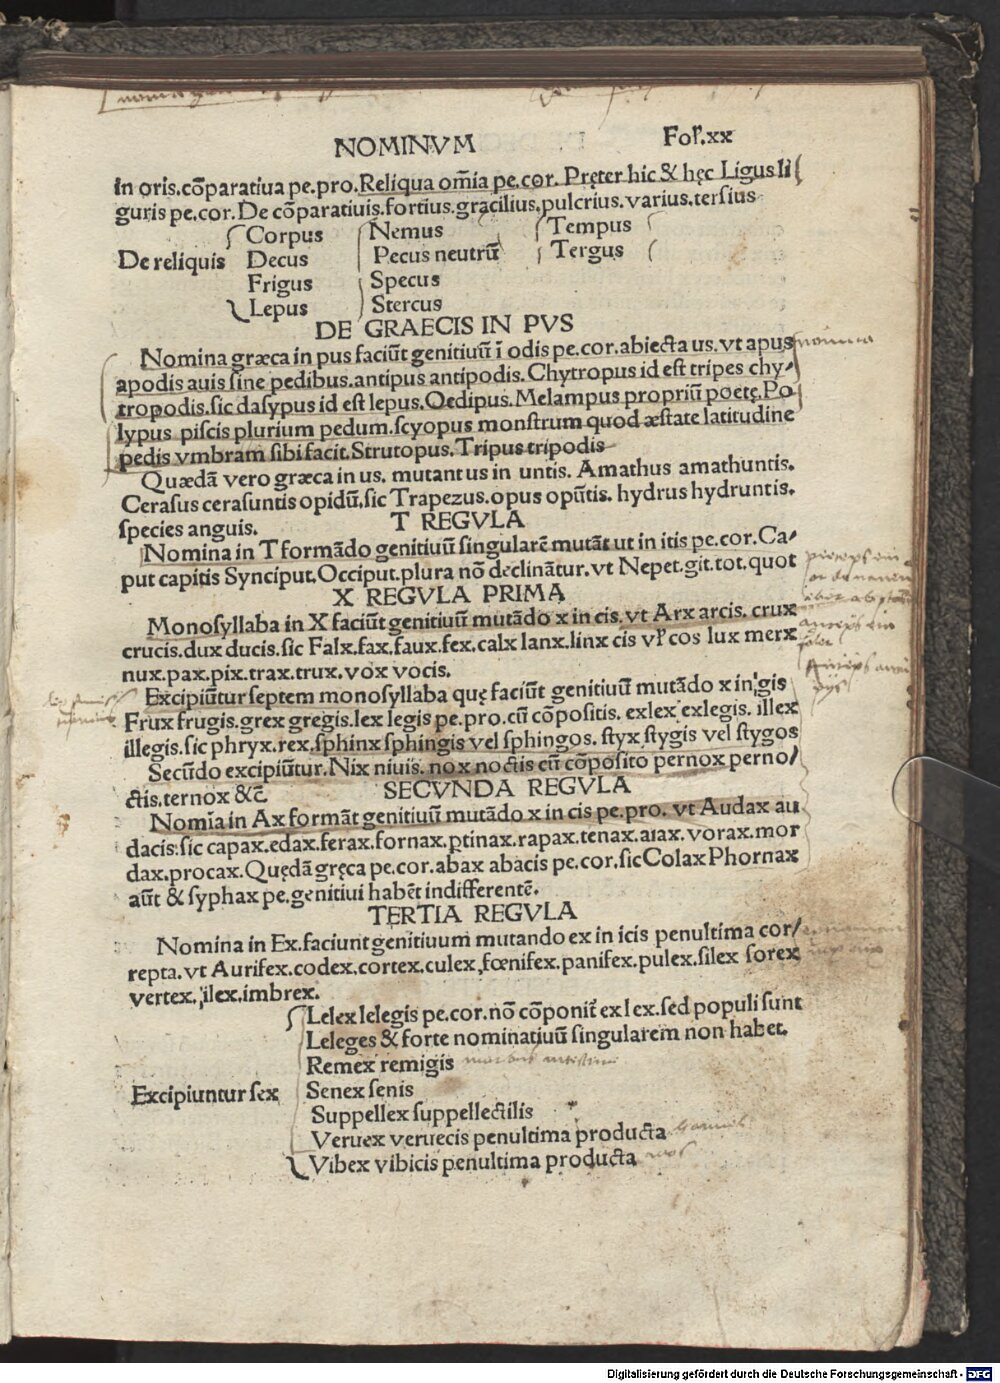 NOMINVM Fol.xx
in oris.cōparatiua pe.pro.Reliqua om̄ia pe.cor. Pręter hic & hęc Ligus li
guris pe.cor.De cōparatiuis.fortius.gracilius.pulcrius.varius.tersius
Corpus Nemus Tempus
De reliquis Decus Pecus neutrū Tergus
Frigus Specus
Lepus Stercus
DE GRAECIS IN PVS
Nomina græca in pus faciūt genitiuū ī odis pe.cor.abiecta us.vt apus nomina
apodis auis sine pedibus.antipus antipodis.Chytropus id est tripes chy/
tropodis.sic dasypus id est lepus.Oedipus.Melampus propriū poetę.Po
lypus piscis plurium pedum.scyopus monstrum quod æstate latitudine
pedis vmbram sibi facit.Strutopus.Tripus tripodis
Quædā vero græca in us. mutant us in untis. Amathus amathuntis.
Cerasus cerasuntis opidū.sic Trapezus.opus opūtis. hydrus hydruntis.
species anguis. T REGVLA
Nomina in T formādo genitiuū singularē mutāt ut in itis pe.cor.Ca/
put capitis Synciput.Occiput.plura nō declināтur.vt Nepet.git.tot.quot
X REGVLA PRIMA
Monosyllaba in X faciūt genitiuū mutādo x in cis.vt Arx arcis. crux
crucis.dux ducis.sic Falx.fax.faux.fex.calx lanx.linx cis vl' cos lux merx
nux.pax.pix.trax.trux.vox vocis.
Excipiūtur septem monosyllaba quę faciūt genitiuū mutādo x in gis
Frux frugis.grex gregis.lex legis pe.pro.cū cōpositis. exlex exlegis. illex
illegis.sic phryx.rex.sphinx sphingis vel sphingos. styx stygis vel stygos
Secūdo excipiūtur.Nix niuis. nox noctis cū cōposito pernox perno/
ctis.ternox &c̄ SECVNDA REGVLA
Nomīa in Ax formāt genitiuū mutādo x in cis pe.pro. vt Audax au
dacis:sic capax.edax.ferax.fornax.ꝑtinax.rapax.tenax.aiax.vorax.mor
dax.procax.Quędā gręca pe.cor.abax abacis pe.cor.sic Colax Phornax
aūt & syphax pe.genitiui habēt indifferentē.
TERTIA REGVLA
Nomina in Ex.faciunt genitiuum mutando ex in icis penultima cor/
repta.vt Aurifex.codex.cortex.culex,fœnifex.panifex.pulex.silex sorex
vertex.ilex.imbrex.
Lelex lelegis pe.cor.nō cōponit̄ ex lex.sed populi sunt
Leleges & forte nominatiuū singularem non habet.
Remex remigis
Excipiuntur sex Senex senis
Suppellex suppellectilis
Veruex veruecis penultima producta
Vibex vibicis penultima producta
Digitalisierung gefördert durch die Deutsche Forschungsgemeinschaft - DFG